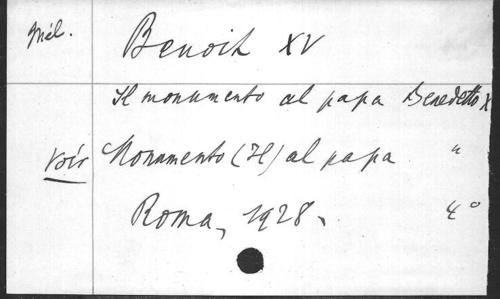 Mél.
Benoit XV
Il monumento al papa Benedetto X
voir Monumento (Il) al papa "
Roma, 1928. 4°